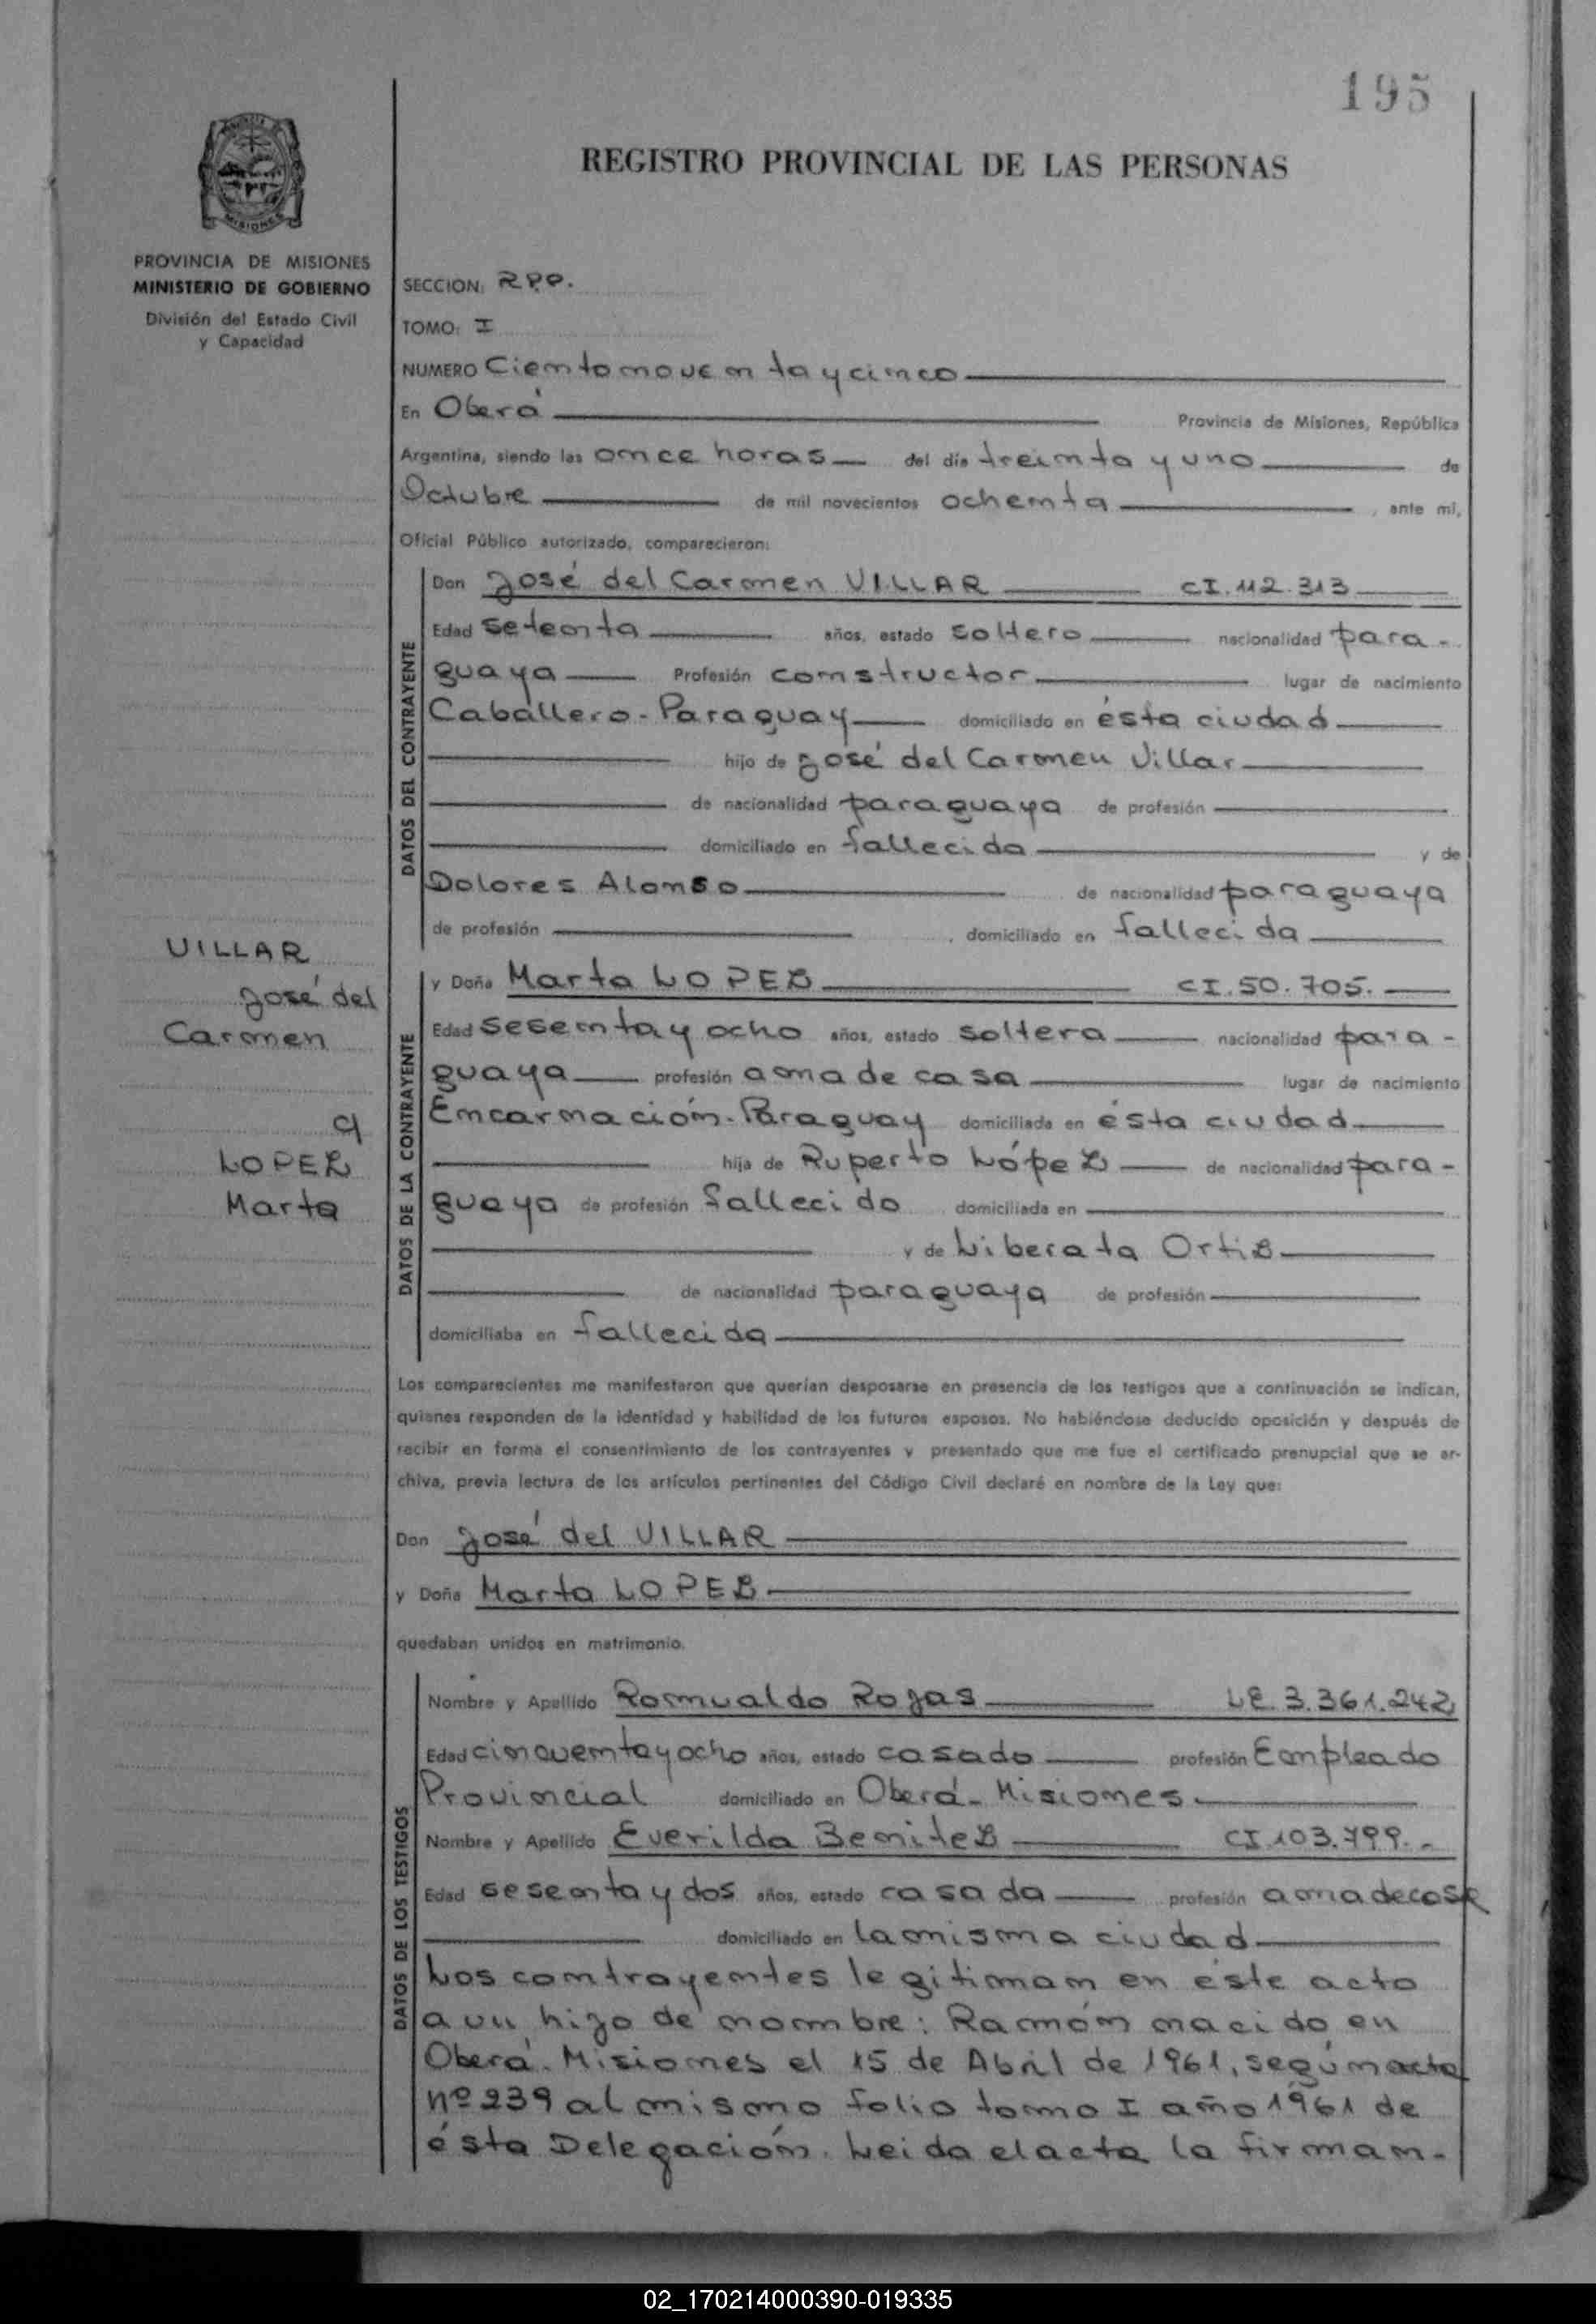 195
REGISTRO PROVINCIAL DE LAS PERSONAS
MISIONES
PROVINCIA DE MISIONES
MINISTERIO DE GOBIERNO
División del Estado Civil
y Capacidad
SECCION: R.P.P.
TOMO: I
NUMERO Ciento noventa y cinco
En Oberá Provincia de Misiones, República
Argentina, siendo las once horas del día treinta y uno de
Octubre de mil novecientos ochenta, ante mí,
Oficial Público autorizado, comparecieron:
DATOS DEL CONTRAYENTE
Don José del Carmen VILLAR CI. 112.313
Edad setenta años, estado soltero nacionalidad para-
guaya Profesión constructor lugar de nacimiento
Caballero - Paraguay domiciliado en ésta ciudad
hijo de José del Carmen Villar
de nacionalidad paraguaya de profesión
domiciliado en fallecido y de
Dolores Alonso de nacionalidad paraguaya
de profesión , domiciliado en fallecida
VILLAR
José del
Carmen
c/
LOPEZ
Marta
DATOS DE LA CONTRAYENTE
y Doña Marta LOPEZ CI. 50.705.
Edad sesenta y ocho años, estado soltera nacionalidad para-
guaya profesión ama de casa lugar de nacimiento
Encarnación - Paraguay domiciliada en ésta ciudad
hija de Ruperto López de nacionalidad para-
guaya de profesión fallecido domiciliada en
y de Liberata Ortiz
de nacionalidad paraguaya de profesión
domiciliaba en fallecida
Los comparecientes me manifestaron que querían desposarse en presencia de los testigos que a continuación se indican,
quienes responden de la identidad y habilidad de los futuros esposos. No habiéndose deducido oposición y después de
recibir en forma el consentimiento de los contrayentes y presentado que me fue el certificado prenupcial que se ar-
chiva, previa lectura de los artículos pertinentes del Código Civil declaré en nombre de la Ley que:
Don José del VILLAR
y Doña Marta LOPEZ
quedaban unidos en matrimonio.
DATOS DE LOS TESTIGOS
Nombre y Apellido Romualdo Rojas LE. 3.361.242
Edad cincuenta y ocho años, estado casado profesión Empleado
Provincial domiciliado en Oberá - Misiones.
Nombre y Apellido Everilda Benitez CI 103.799.-
Edad sesenta y dos años, estado casada profesión ama de casa
domiciliado en la misma ciudad
Los contrayentes legitiman en éste acto
a un hijo de nombre: Ramón nacido en
Oberá. Misiones el 15 de Abril de 1961, según acta
nº 239 al mismo folio tomo I año 1961 de
ésta Delegación. Leida el acta la firman.-
02_170214000390-019335